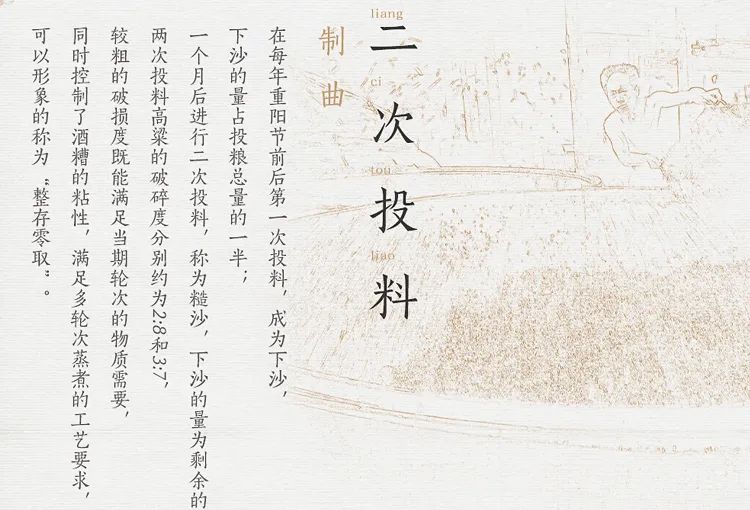 liang
二
ci
次
tou
投
liao
料
制曲
在每年重阳节前后第一次投料，成为下沙，
下沙的量占投粮总量的一半；
一个月后进行二次投料，称为糙沙，下沙的量为剩余的
两次投料高粱的破碎度分别约为2:8和3:7，
较粗的破损度既能满足当期轮次的物质需要，
同时控制了酒糟的粘性，满足多轮次蒸煮的工艺要求，
可以形象的称为“整存零取”。